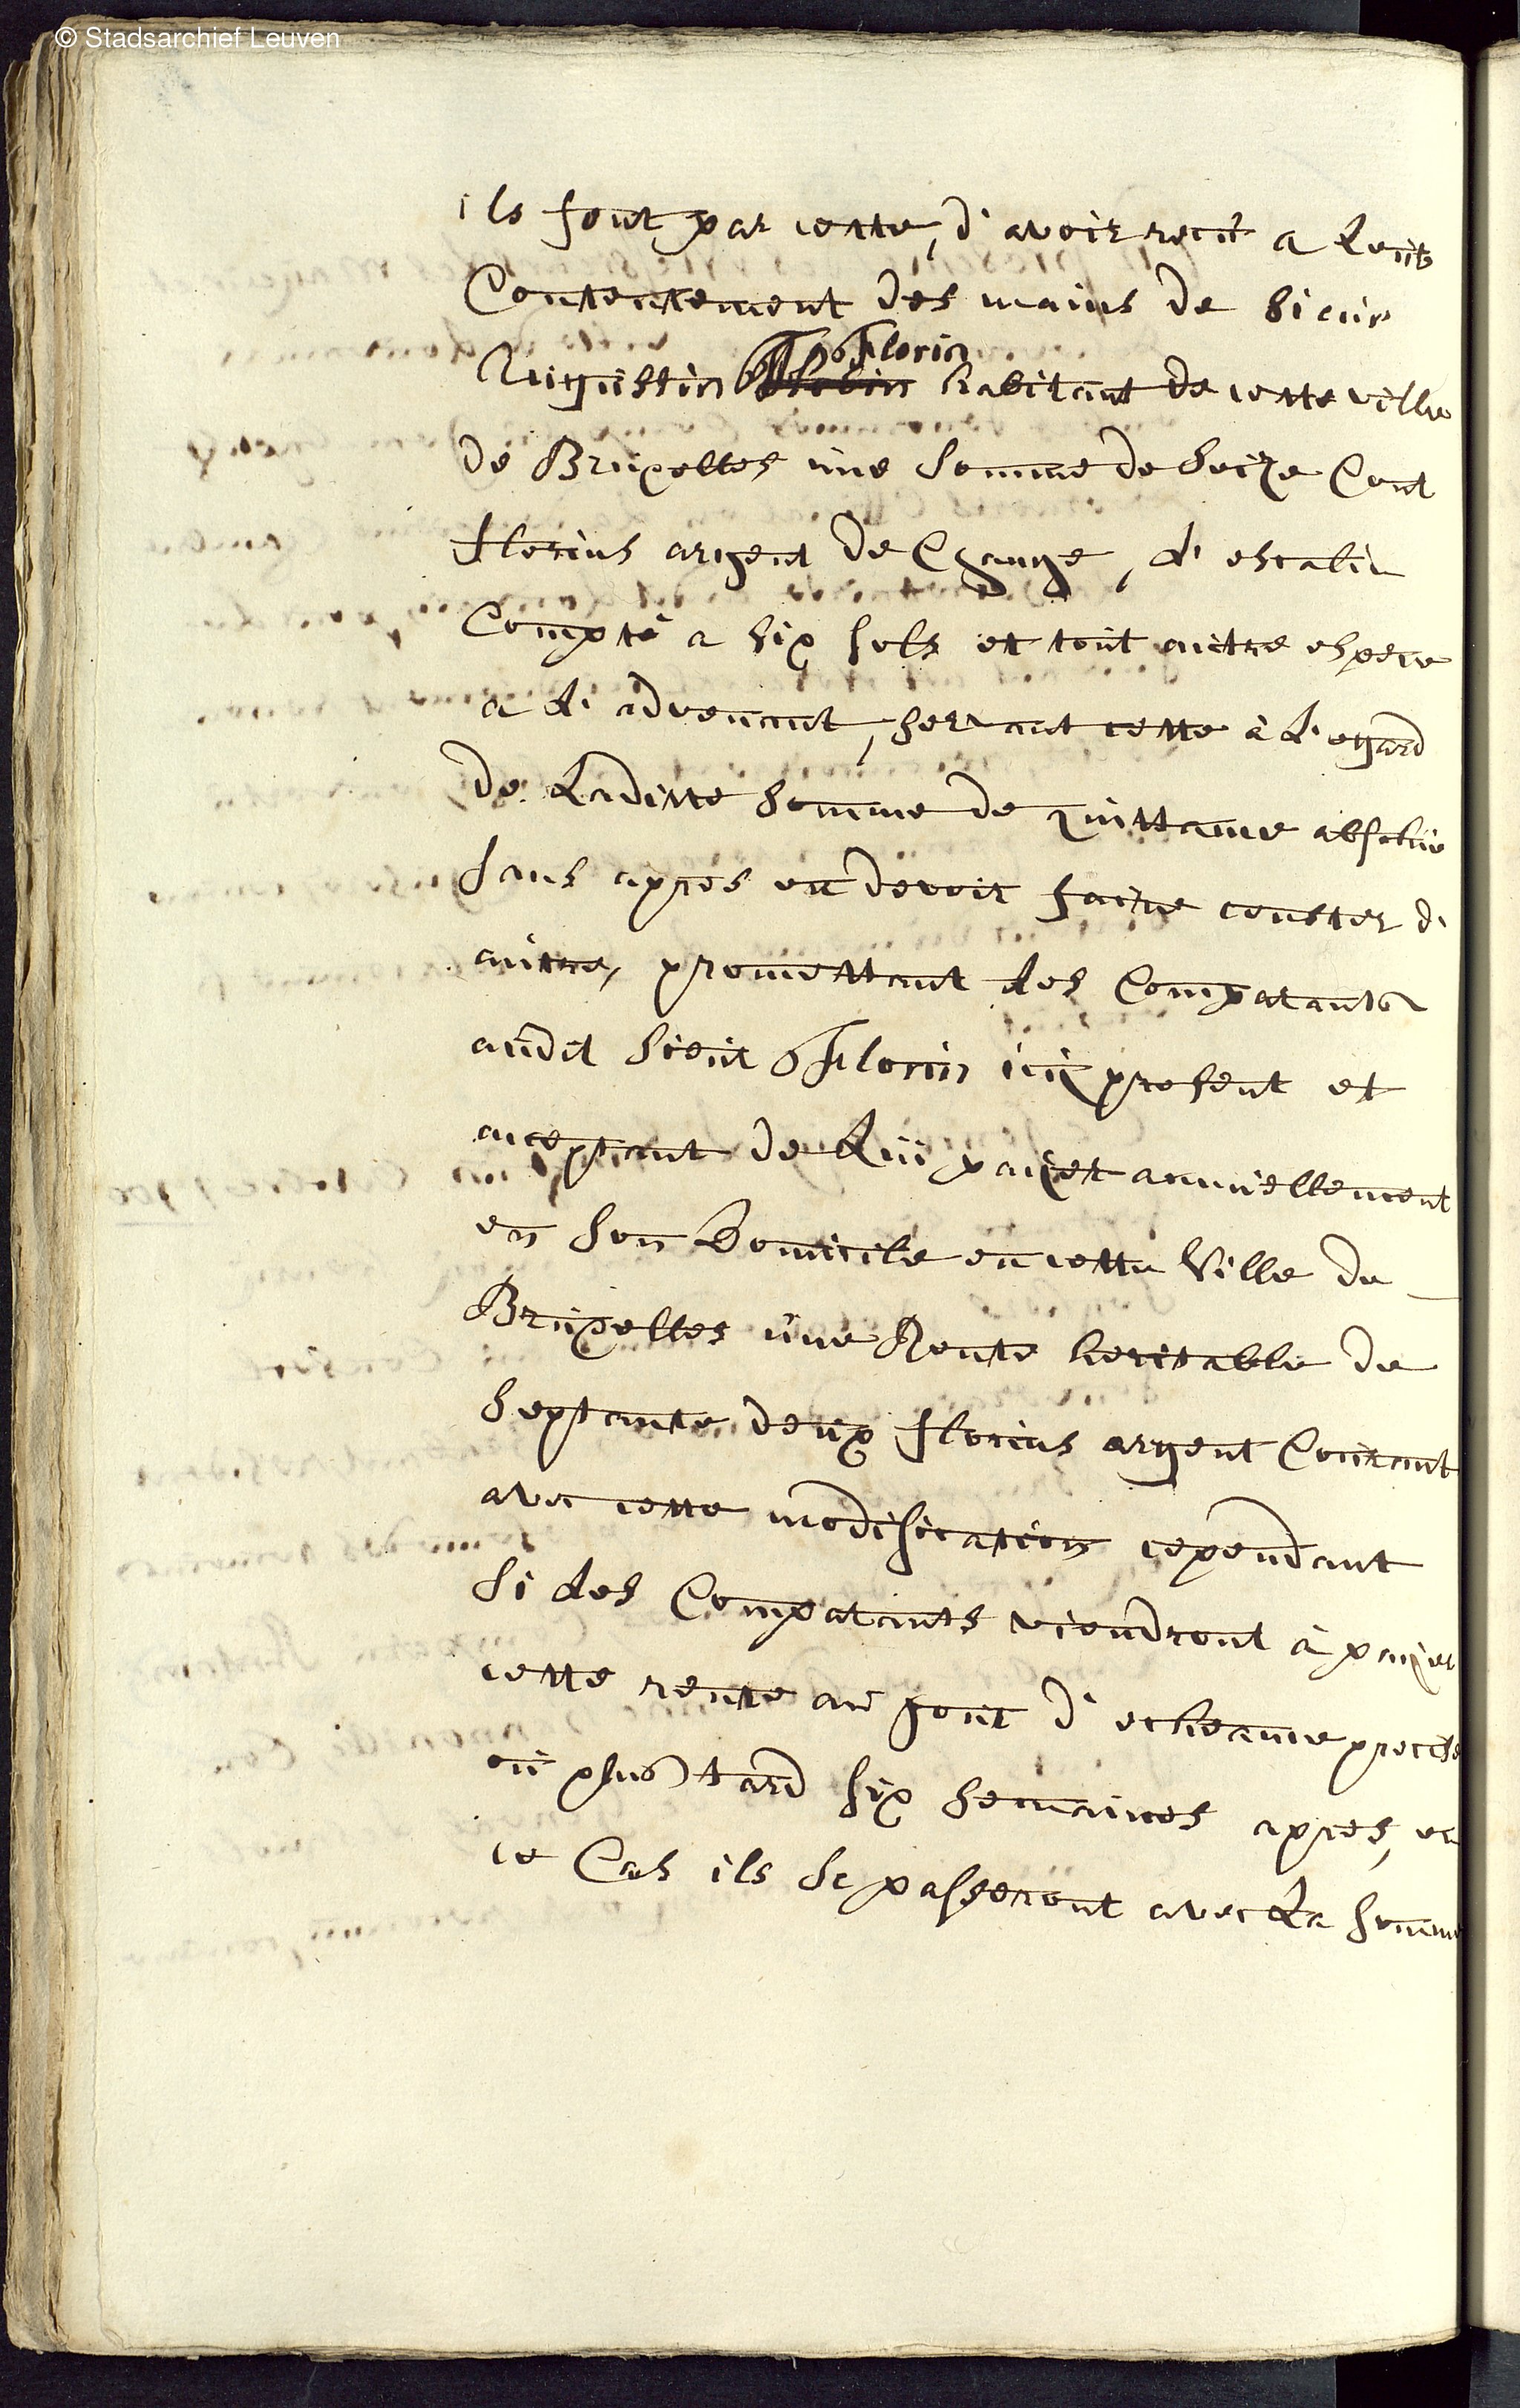 © Stadsarchief Leuven
ils font par cette, d'avoir recû a Leur
Contentement des mains de Sieur
Florin
Augustin habitant de cette ville
de Bruxelles une Somme de Seize Cent
florins argent de Change, d'escalin
Compté a six sols et tout autre espece
a L'advenant, servant cette à L'egard
de Laditte Somme de quittance absolue
sans apres en devoir faire conster d'
autre, promettant Les Comparants
audit Sieur Florin icÿ present et
acceptant de Lui paÿer annuellement
en son Domicile en cette Ville de
Bruxelles une Rente heritable de
Septante deux florins argent Courant
avec cette modification cependant
si Les Comparants viendront à paÿer
cette rente au jour d'echeance precise
ou plus tard six semaines apres, en
ce Cas ils se passeront avec La somme